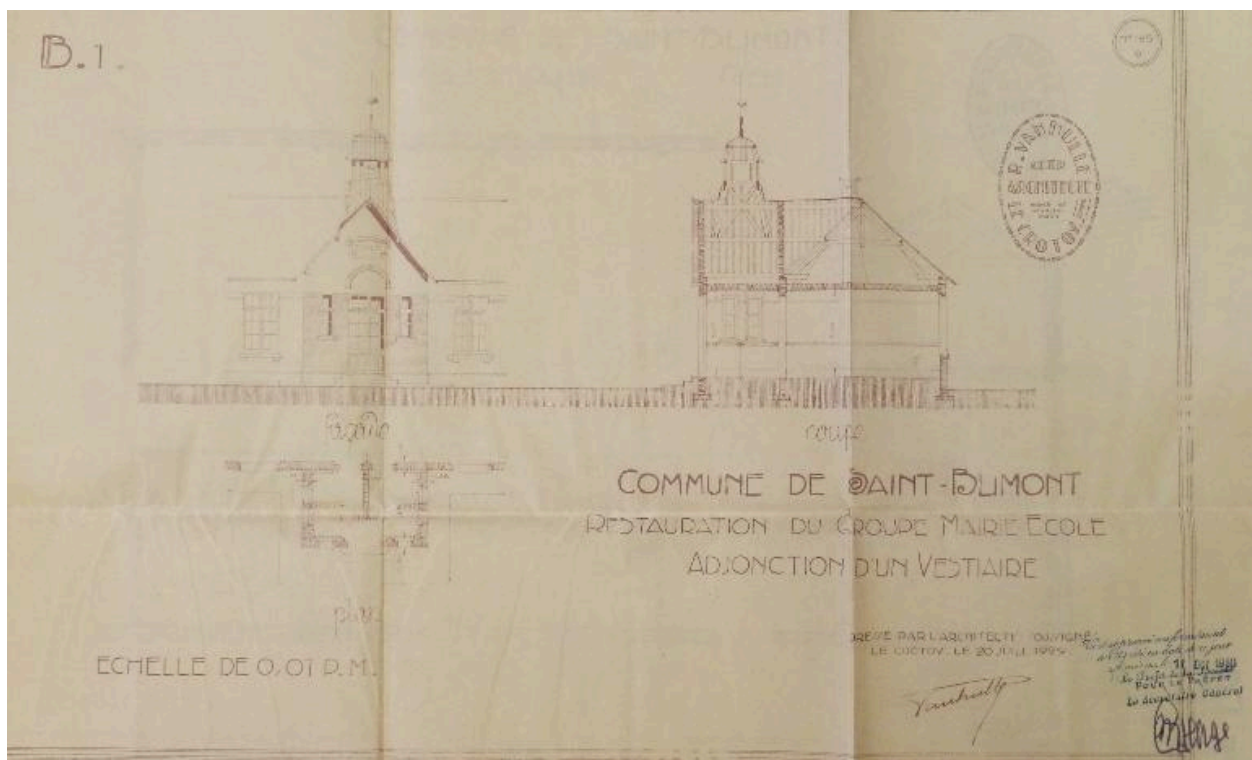 B.1.
ARCHITECTE
LE CROTOY
façade
coupe
COMMUNE DE SAINT-BLIMONT
RESTAURATION DU GROUPE MAIRIE ECOLE
ADJONCTION D'UN VESTIAIRE
plan
ECHELLE DE 0,01 P.M.
DRESSÉ PAR L'ARCHITECTE SOUSSIGNÉ
LE CROTOY, LE 20
POUR LE PREFET
Le Secrétaire Général